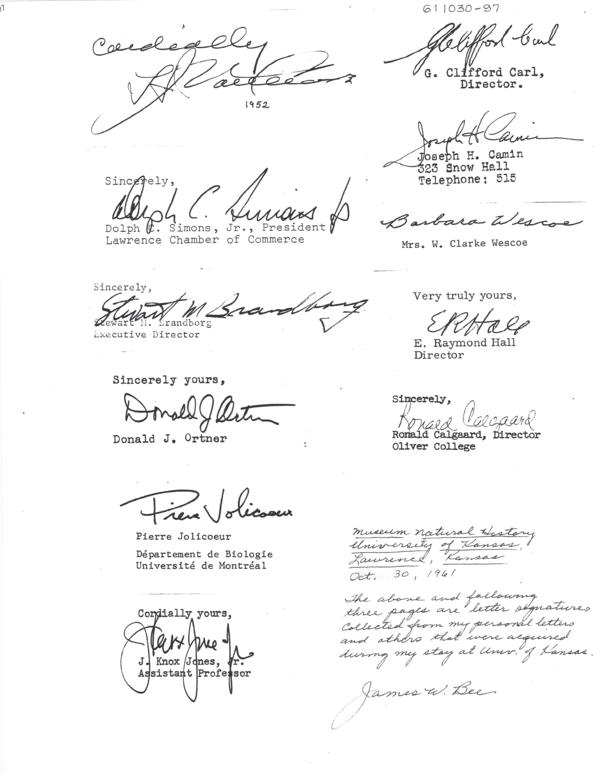 611030-97
Cordially
1952
G. Clifford Carl
G. Clifford Carl,
Director.
Joseph H. Camin
Joseph H. Camin
323 Snow Hall
Telephone: 515
Sincerely,
Dolph C. Simons Jr
Dolph C. Simons, Jr., President
Lawrence Chamber of Commerce
Barbara Wescoe
Mrs. W. Clarke Wescoe
Sincerely,
Stewart M Brandborg
Stewart M. Brandborg
Executive Director
Very truly yours,
E R Hall
E. Raymond Hall
Director
Sincerely yours,
Donald J Ortner
Donald J. Ortner
Sincerely,
Ronald Calgaard
Ronald Calgaard, Director
Oliver College
Pierre Jolicoeur
Pierre Jolicoeur
Département de Biologie
Université de Montréal
Cordially yours,
J Knox Jones Jr.
J. Knox Jones, Jr.
Assistant Professor
Museum Natural History
University of Kansas
Lawrence, Kansas
Oct. 30, 1961
The above and following
three pages are letter signatures
collected from my personal letters
and others that were acquired
during my stay at Univ. of Kansas.
James W. Bee